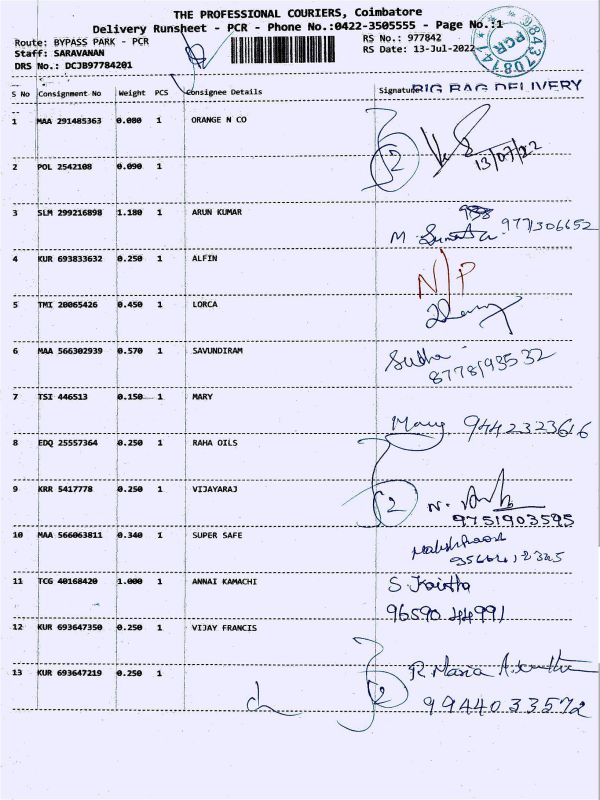 THE PROFESSIONAL COURIERS, Coimbatore
Delivery Runsheet - PCR - Phone No.:0422-3505555 - Page No.:1
Route: BYPASS PARK - PCR
Staff: SARAVANAN
DRS No.: DCJB97784201
RS No.: 977842
RS Date: 13-Jul-2022
PCR
S No Consignment No Weight PCS Consignee Details Signature
BIG BAG DELIVERY
1 MAA 291485363 0.080 1 ORANGE N CO
2 13/07/22
2 POL 2542108 0.090 1
3 SLM 299216898 1.180 1 ARUN KUMAR
9771306652
M.
4 KUR 693833632 0.250 1 ALFIN
N/P
5 TMI 20065426 0.450 1 LORCA
6 MAA 566302939 0.570 1 SAVUNDIRAM
Sudha
8778193532
7 TSI 446513 0.150 1 MARY
Mary 9442323616
8 EDQ 25557364 0.250 1 RAHA OILS
9 KRR 5417778 0.250 1 VIJAYARAJ
2 N.
9751903595
10 MAA 566063811 0.340 1 SUPER SAFE
11 TCG 40168420 1.000 1 ANNAI KAMACHI
S.
96590 44991
12 KUR 693647350 0.250 1 VIJAY FRANCIS
13 KUR 693647219 0.250 1
R. Maria
2 9944033572